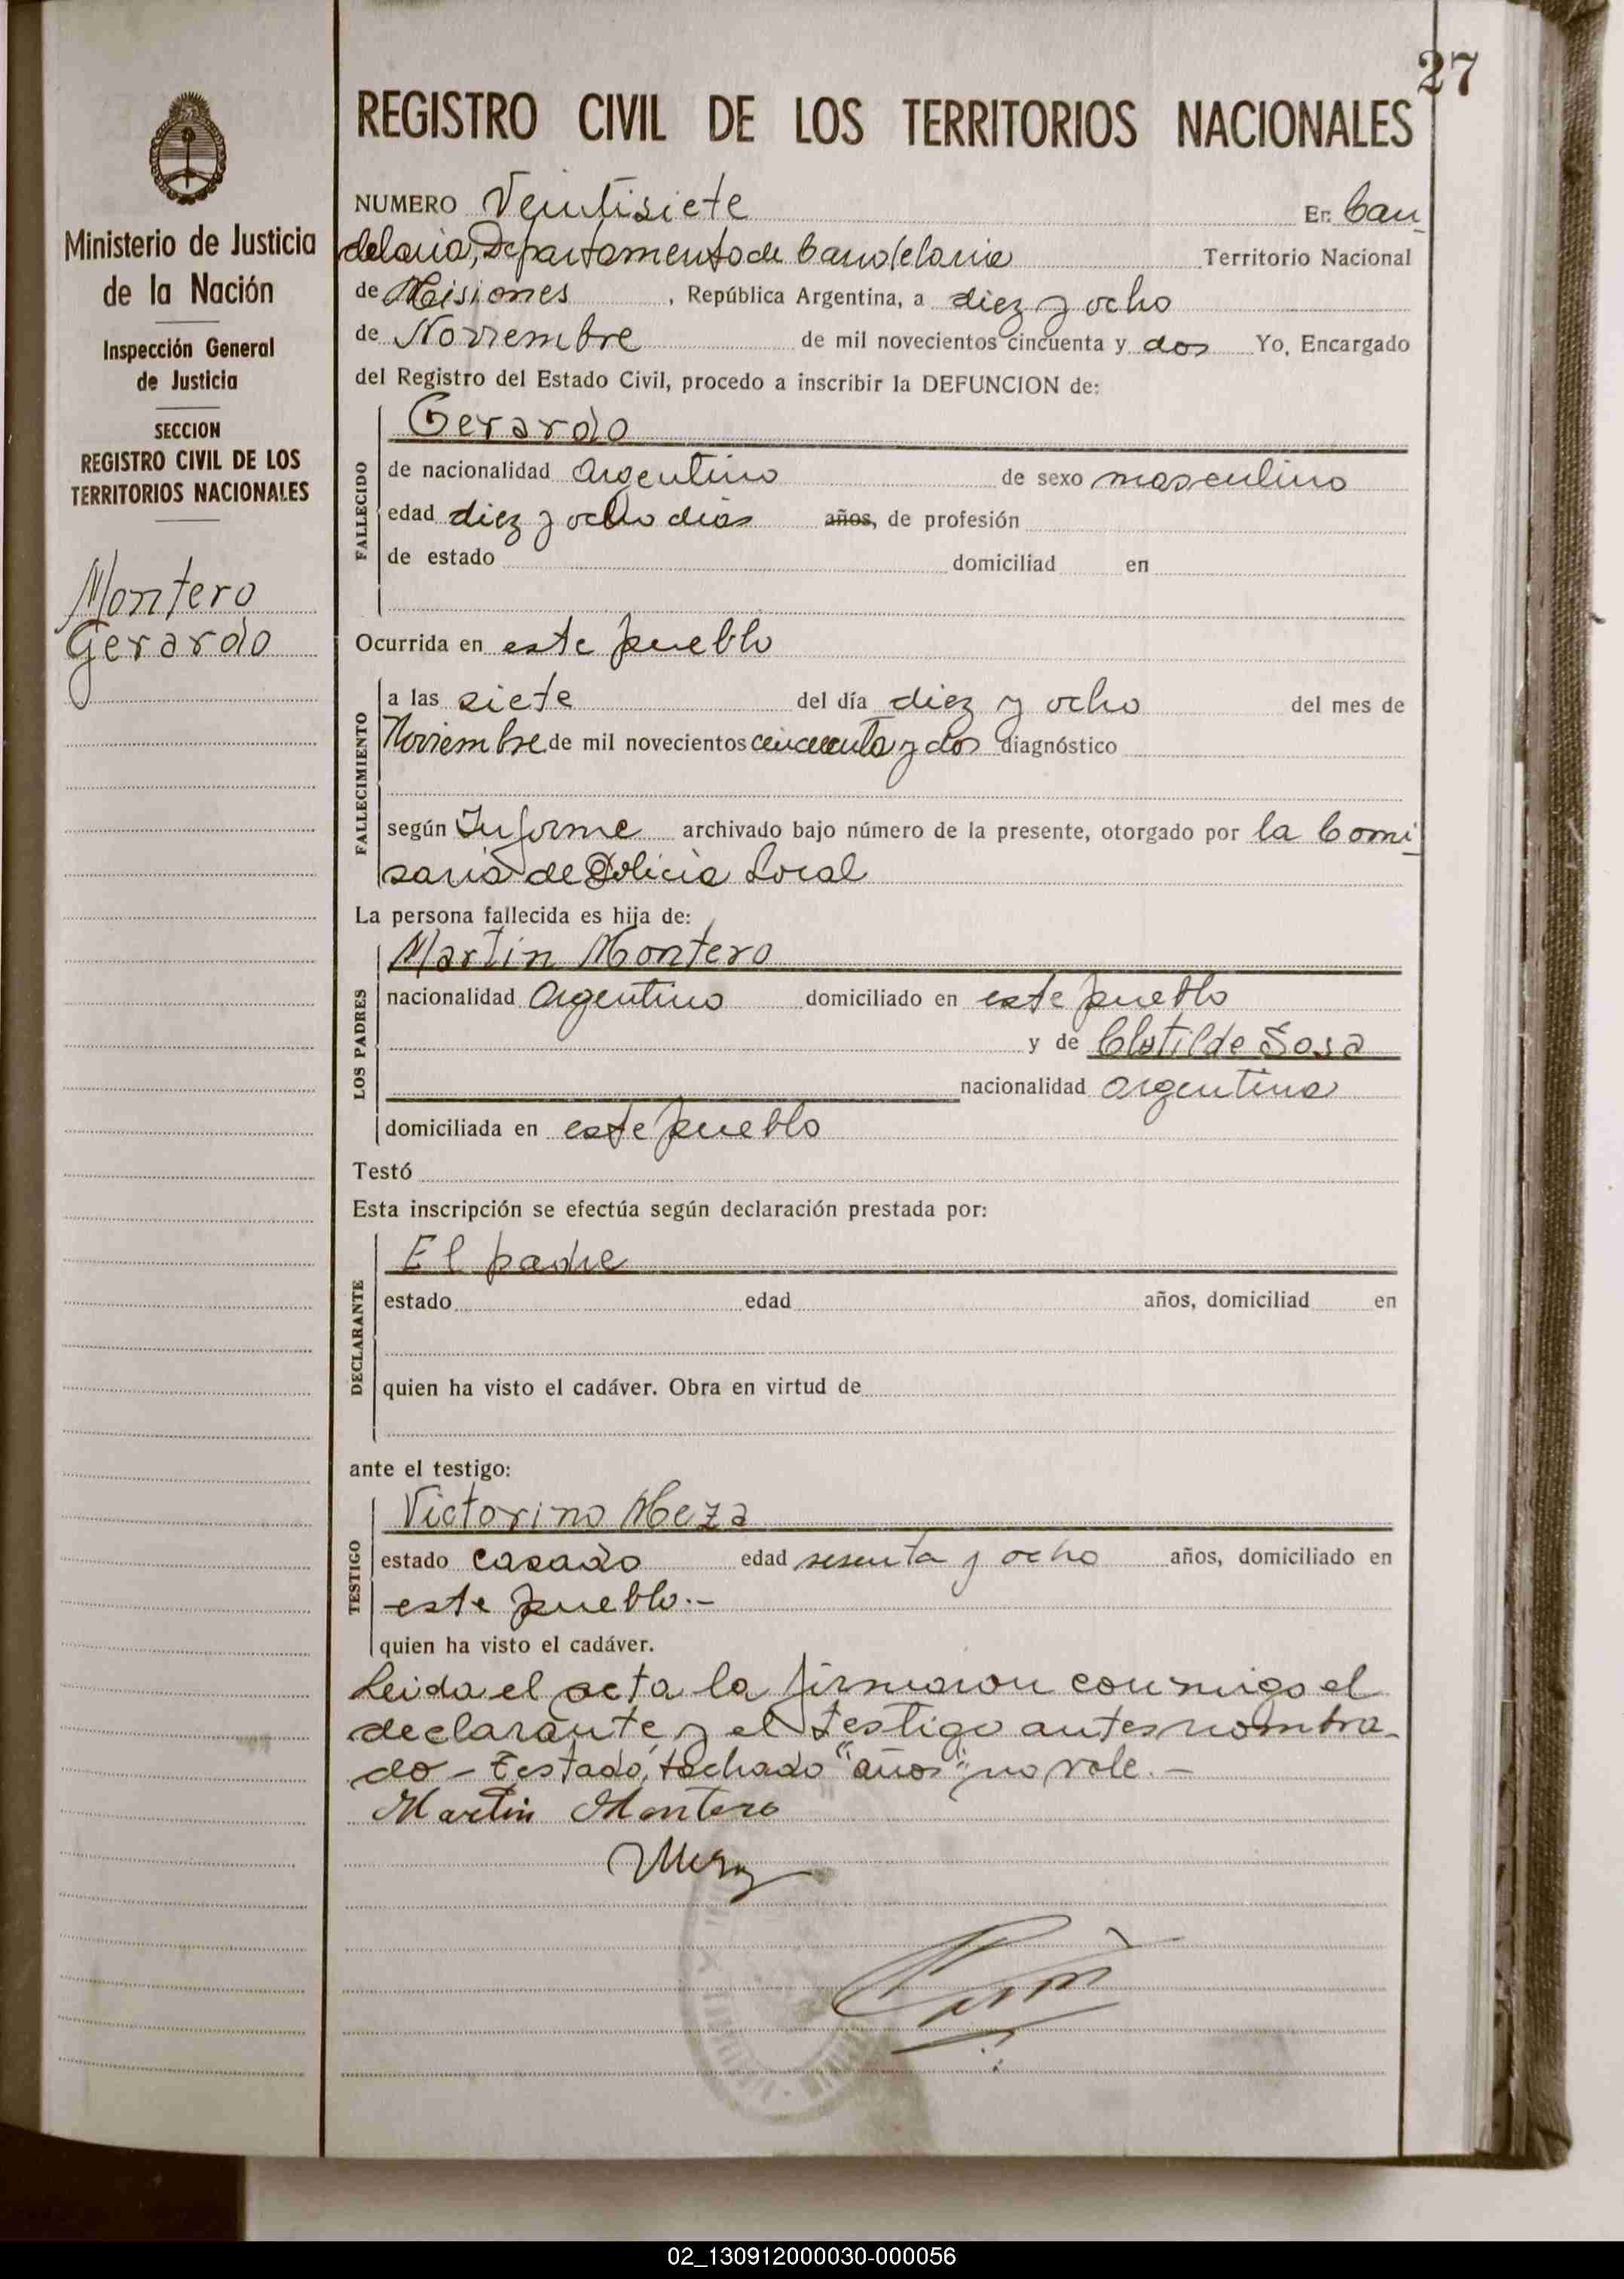 27
REGISTRO CIVIL DE LOS TERRITORIOS NACIONALES
Ministerio de Justicia
de la Nación
Inspección General
de Justicia
SECCION
REGISTRO CIVIL DE LOS
TERRITORIOS NACIONALES
Montero
Gerardo
NUMERO Veintisiete En Can
delaria, Departamento de Candelaria Territorio Nacional
de Misiones, República Argentina, a diez y ocho
de Noviembre de mil novecientos cincuenta y dos Yo, Encargado
del Registro del Estado Civil, procedo a inscribir la DEFUNCION de:
FALLECIDO
Gerardo
de nacionalidad Argentino de sexo masculino
edad diez y ocho dias años, de profesión
de estado domiciliad en
Ocurrida en este pueblo
FALLECIMIENTO
a las siete del día diez y ocho del mes de
Noviembre de mil novecientos cincuenta y dos diagnóstico
según Informe archivado bajo número de la presente, otorgado por la Comi
saria de Policia Local
La persona fallecida es hija de:
LOS PADRES
Martin Montero
nacionalidad Argentino domiciliado en este pueblo
y de Clotilde Sosa
nacionalidad argentina
domiciliada en este pueblo
Testó
Esta inscripción se efectúa según declaración prestada por:
DECLARANTE
El padre
estado edad años, domiciliad en
quien ha visto el cadáver. Obra en virtud de
ante el testigo:
TESTIGO
Victorino Meza
estado casado edad sesenta y ocho años, domiciliado en
este pueblo.-
quien ha visto el cadáver.
Leida el acta la firmaron conmigo el
declarante y el testigo antes nombra-
do - Testado, tachado "años" no vale.-
Martin Montero
02_130912000030-000056